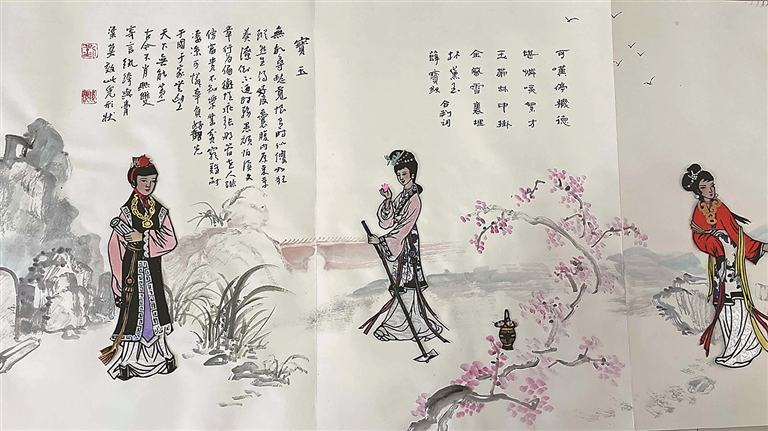 可嘆停機德
堪憐詠絮才
玉帶林中掛
金簪雪裏埋
林黛玉
薛寶釵 合判詞
寶玉
無故尋愁覓恨有時似傻如狂
縱然生得好皮囊腹內原來草
莽潦倒不通庶務愚頑怕讀文
章行為偏僻性乖張那管世人誹
謗富貴不知樂業貧窮難耐
淒涼可憐辜負好韶光
于國于家無望
天下無能第一
古今不肖無雙
寄言紈袴與膏
粱莫效此兒形狀